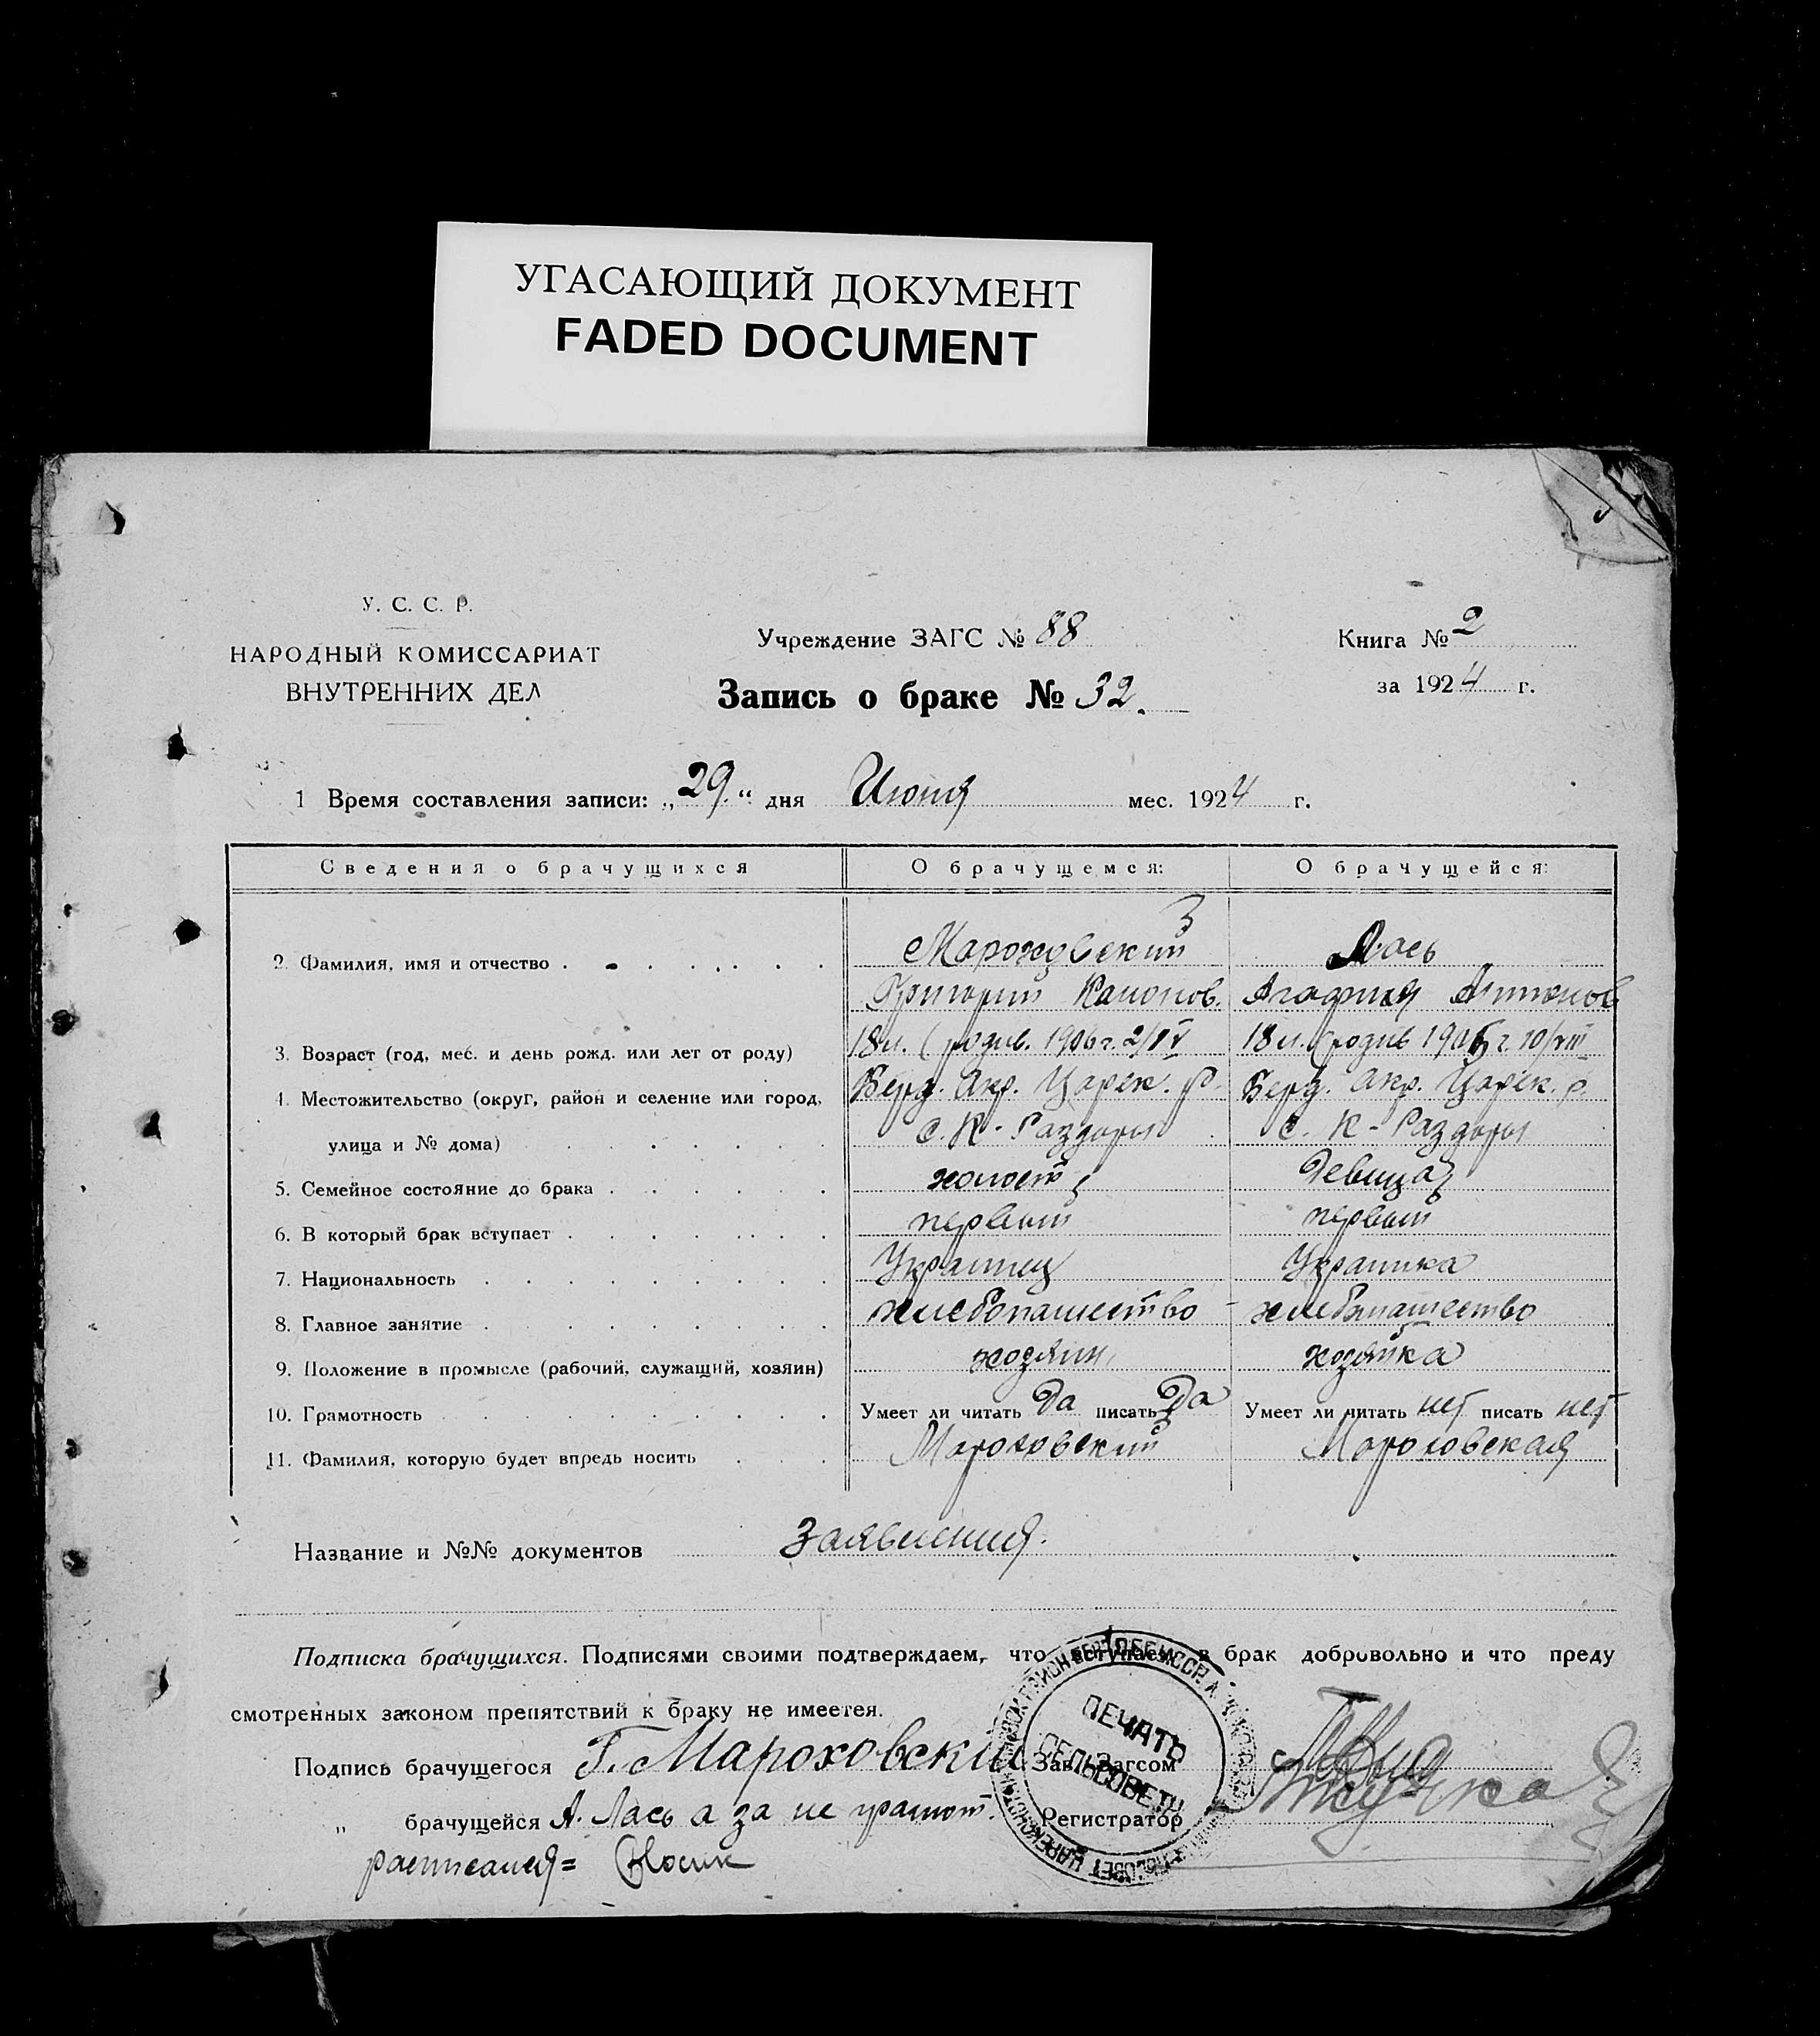 УГАСАЮЩИЙ ДОКУМЕНТ
FADED DOCUMENT
У. С. С. Р.
НАРОДНЫЙ КОМИССАРИАТ
ВНУТРЕННИХ ДЕЛ
Учреждение ЗАГС № 88
Запись о браке № 32.
Книга № 2
за 1924 г.
1 Время составления записи: „29.“ дня Июня мес. 1924 г.
Сведения о брачущихся О брачущемся: О брачущейся:
2. Фамилия, имя и отчество Мароховский Лась
Григорий Агафия Антонов
3. Возраст (год, мес. и день рожд. или лет от роду) 18 л. (родив. 1906 г. 2/IV 18 л. (родив 1905 г. 10/VIII
4. Местожительство (округ, район и селение или город, Берд. Окр. Царек. р. Берд. Окр. Царек. р.
улица и № дома) с. К-Раздоры с. К-Раздоры
5. Семейное состояние до брака холост девица
6. В который брак вступает первый первый
7. Национальность Украинец Украинка
8. Главное занятие хлебопашество хлебопашество
9. Положение в промысле (рабочий, служащий, хозяин) хозяин хозяйка
10. Грамотность Умеет ли читать Да писать Да Умеет ли читать нет писать нет
11. Фамилия, которую будет впредь носить Мароховский Мароховская
Название и №№ документов Заявления.
Подписка брачущихся. Подписями своими подтверждаем, что вступаем в брак добровольно и что преду
смотренных законом препятствий к браку не имеется.
Подпись брачущегося Г. Мароховский Зав. Загсом
„ брачущейся А. Лась а за не грамот. Регистратор
расписался= Носик
ПЕЧАТЬ
СЕЛЬСОВЕТУ